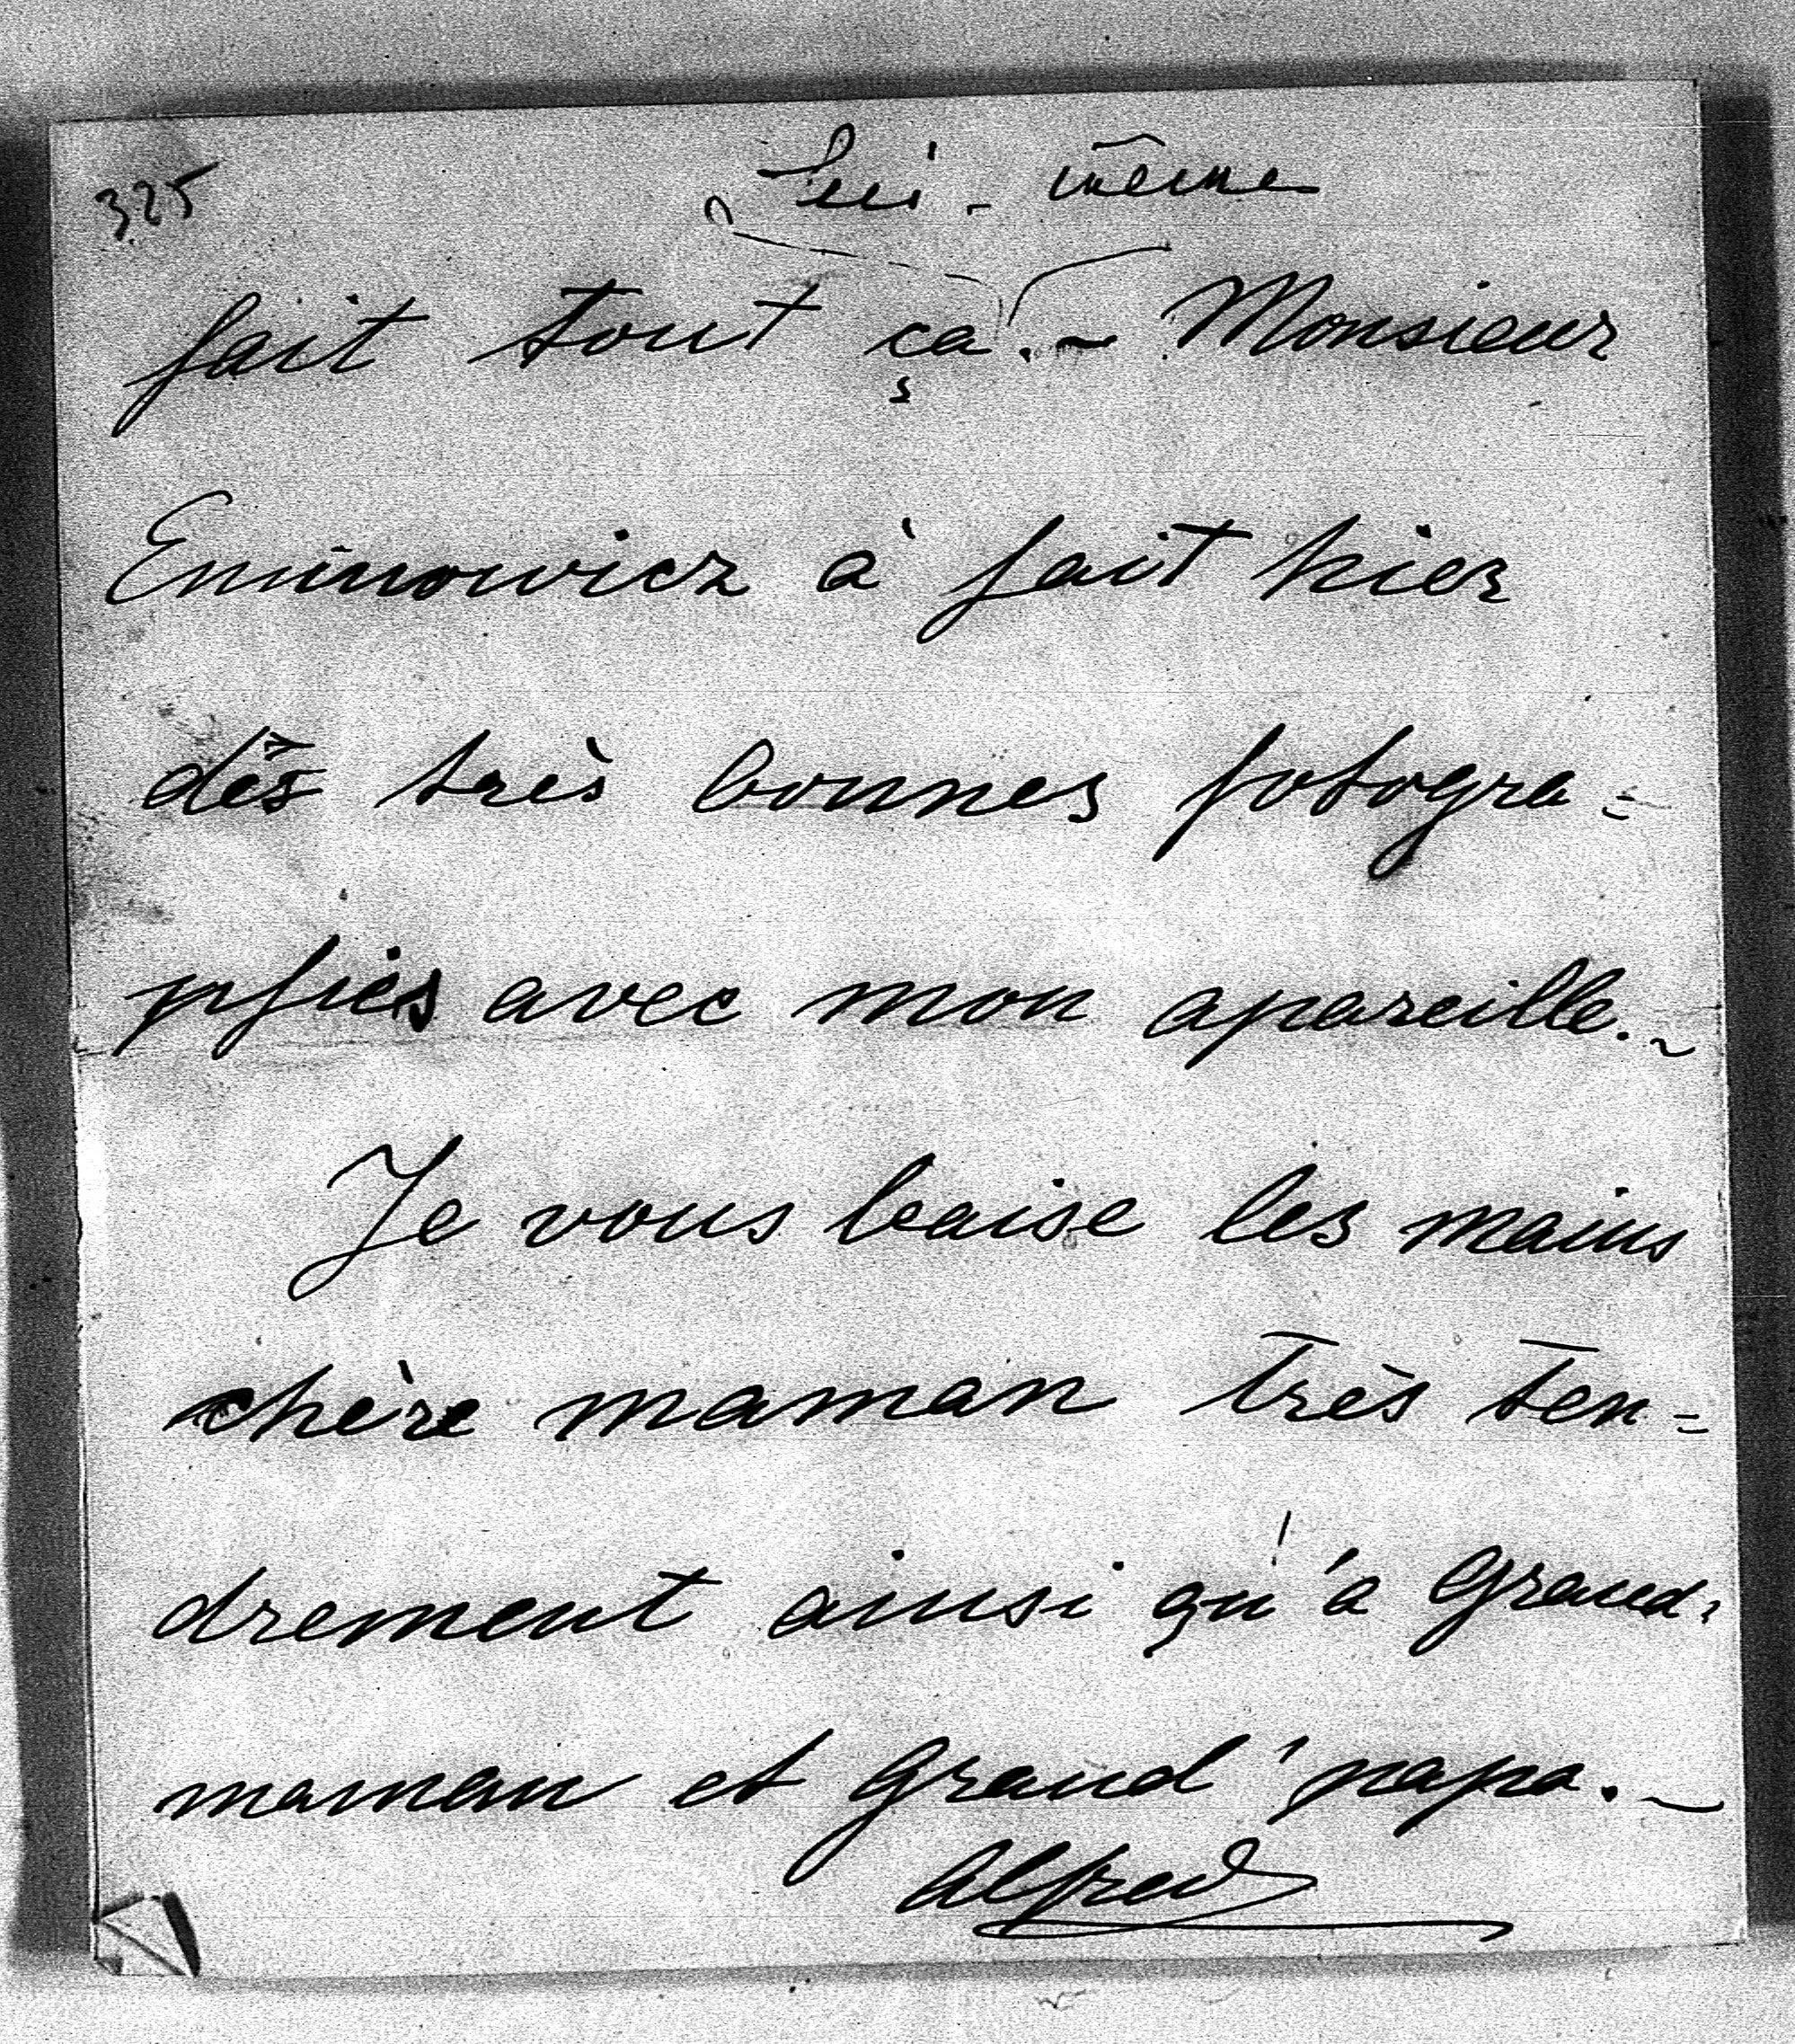 325
Lui-même
fait tout ça. ~ Monsieur
Eminowicz à fait hier
dès très bonnes fotogra=
pfies avec mon apareille. ~
Je vous baise les mains
chère maman très ten=
drement ainsi qu'a Grand'
maman et Grand'papa. ~
Alfred